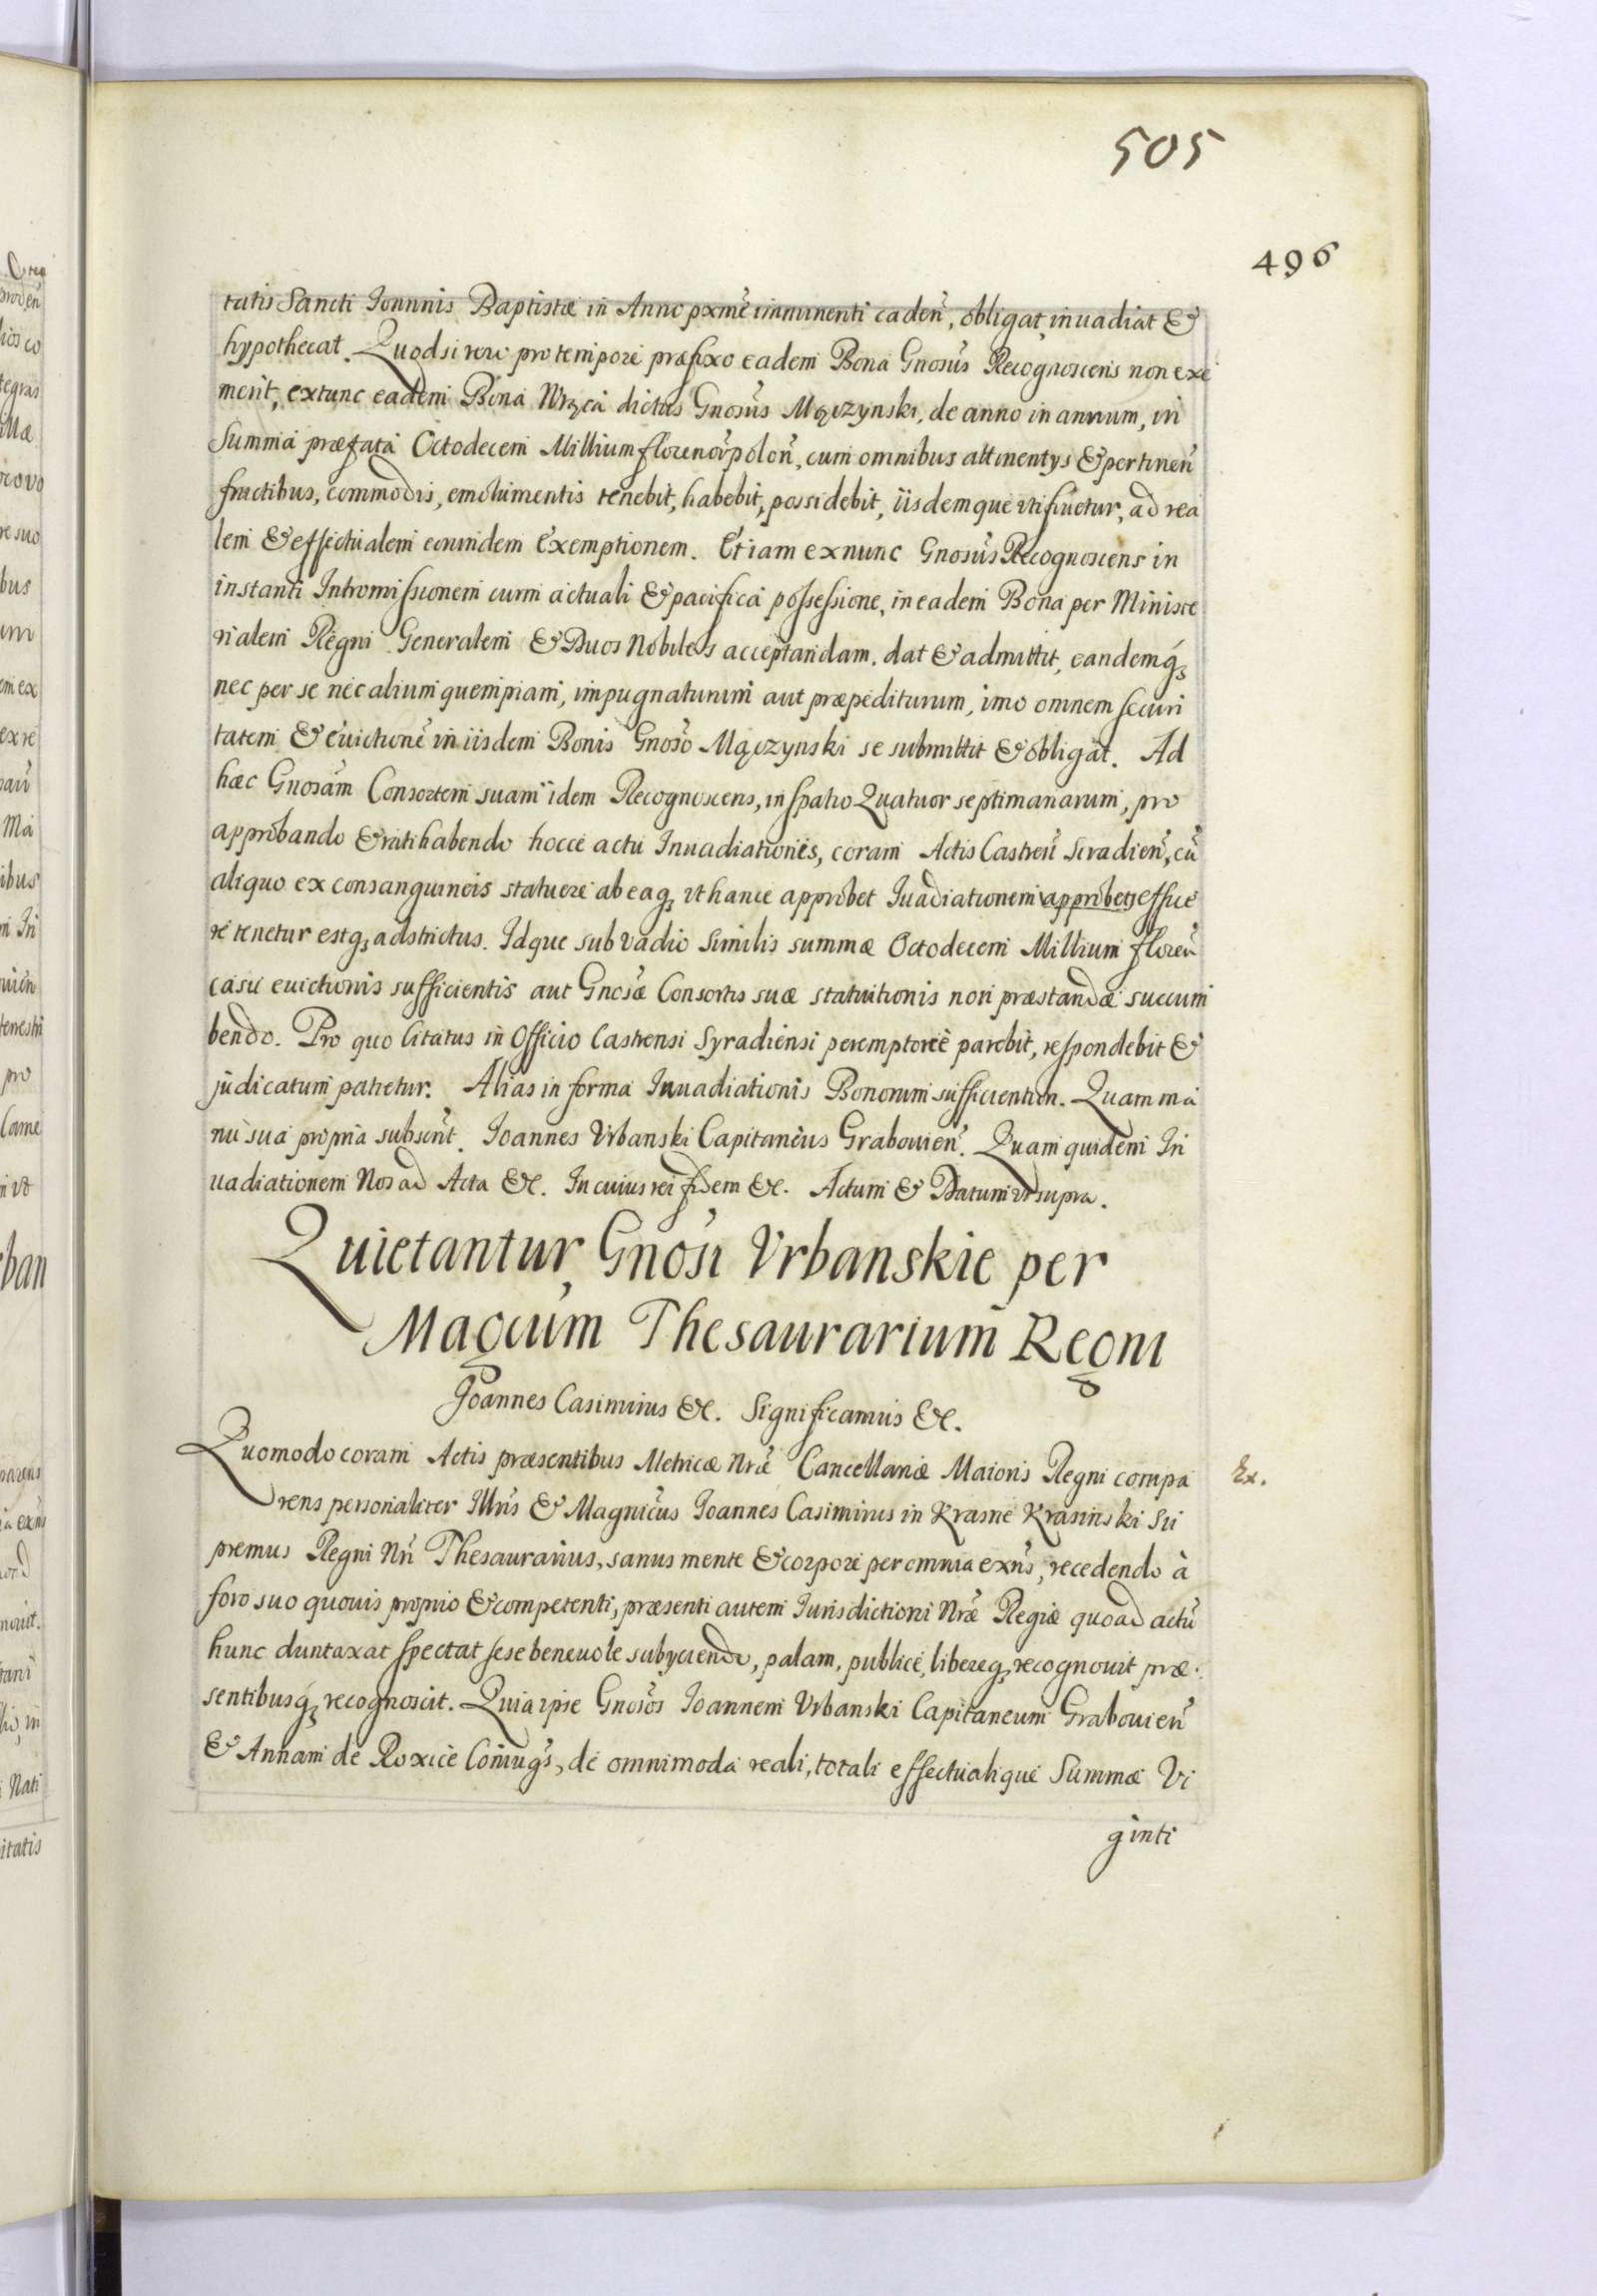 505
496
tatis Sancti Ionnnis Baptistæ in Anno pxmẽ imminenti cadeñ, obligat, inuadiat &
hypothecat. Quodsi vero pro tempore præfixo eadem Bona Gnosus Recognoscens non exe
merit, extunc eadem Bona Wrzca dictus Gnosus Mączynski, de anno in annum, in
Summa præfata Octodecem Millium florenoř poloñ, cum omnibus attinentys & pertineñ
fructibus, commodis, emolumentis tenebit, habebit, possidebit, iisdemque vtifruetur, ad rea
lem & effectualem eorundem exemptionem. Etiam exnunc Gnosus Recognoscens in
instanti Intromissionem cum actuali & pacifica possessione, in eadem Bona per Ministe
rialem Regni Generalem & Duos Nobiles acceptandam. dat & admittit, eandemq3
nec per se nec alium quempiam, impugnaturum aut præpediturum, imo omnem securi
tatem & euictionẽ in iisdem Bonis Gnoso Mączynski se submittit & obligat. Ad
hæc Gnosam Consortem suam idem Recognoscens, in spatio Quatuor septimanarum, pro
approbando & ratihabendo hocce actu Inuadiationis, coram Actis Castreñ Siradieñ, cũ
aliquo ex consanguineis statuere ab eaq3 vt hance approbet Iuadiationem approbet, effice
re tenetur estq3 adstrictus. Idque sub vadio similis summæ Octodecem Millium floreñ
casu euictionis sufficientis aut Gnosæ Consortis suæ statuitionis non præstandæ succum
bendo. Pro quo Citatus in Officio Castrensi Syradiensi peremptorie parebit, respondebit &
judicatum patietur. Alias in forma Inuadiationis Bonorum sufficientem. Quam ma
nu sua propria subscrit. Ioannes Vrbanski Capitaneus Grabouieñ. Quam quidem In
uadiationem Nos ad Acta &c. In cuius rei fidem &c. Actum & Datum vt supra.
Quietantur Gnosi Vrbanskie per
Magcum Thesaurarium Regni
Joannes Casimirus &c. Significamus &c.
Quomodo coram Actis præsentibus Metricæ Nræ Cancellariæ Maioris Regni compa
Ex.
rens personaliter Illris & Magnicus Ioannes Casimirus in Krasne Krasinski Su
premus Regni Nri Thesaurarius, sanus mente & corpore per omnia exns, recedendo à
foro suo quouis proprio & competenti, præsenti autem Iurisdictioni Nræ Regiæ quoad actũ
hunc duntaxat spectat sese beneuole subyciendo, palam, publice, libereq3 recognouit præ.
sentibusq3 recognoscit. Quia ipse Gnosos Ioannem Vrbanski Capitaneum Grabouieñ
& Annam de Roxice Coniugs, de omnimoda reali, totali effectualique Summæ Vi
ginti